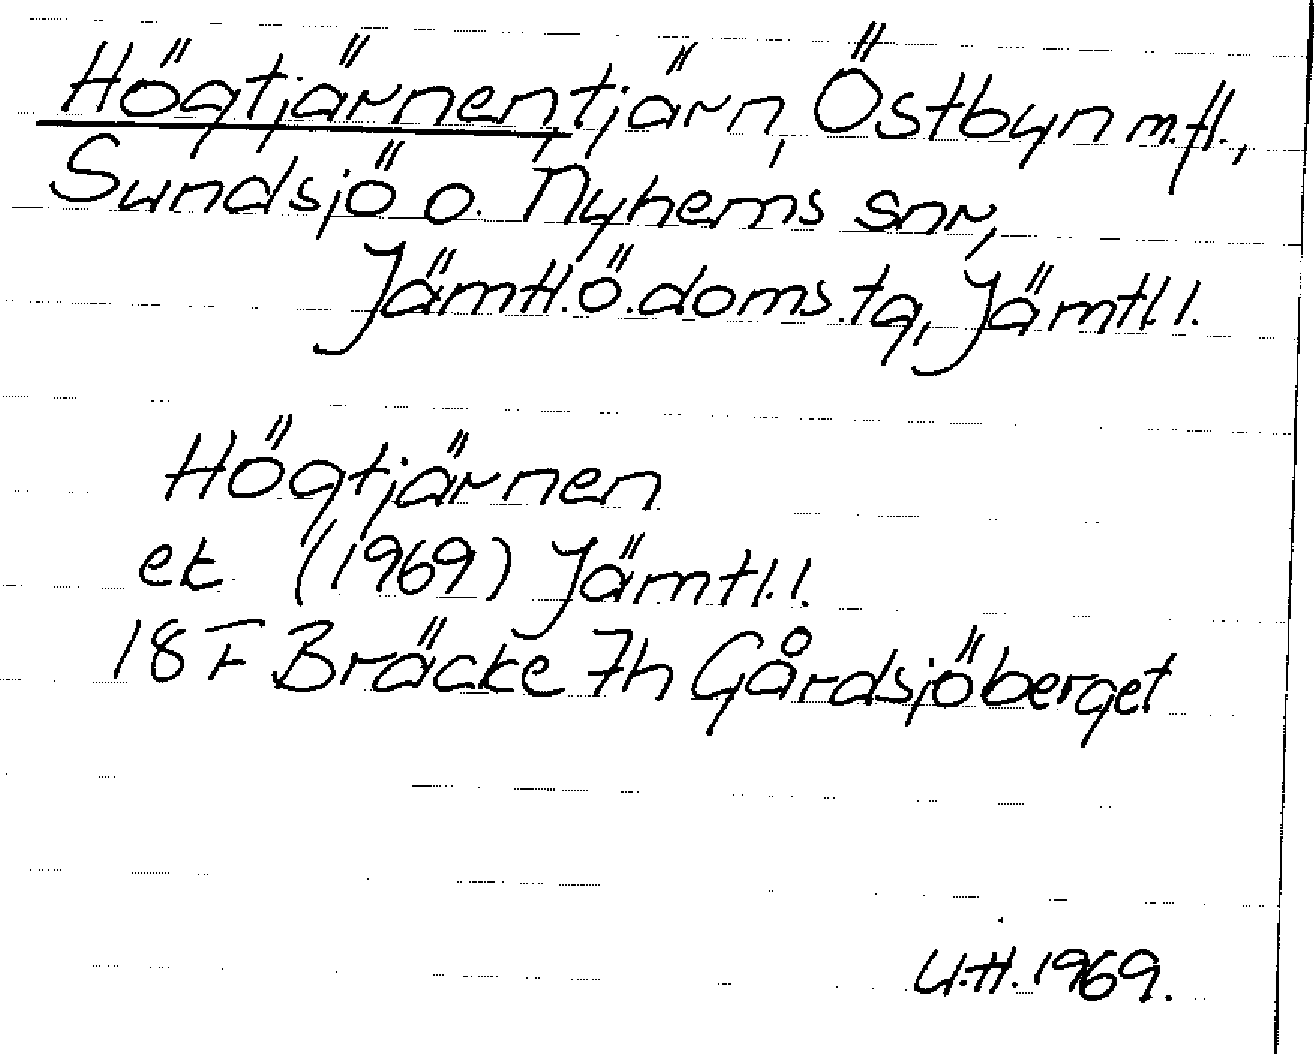 Högtjärnen, tjärn, Östbyn m.fl.,
Sundsjö o. Nyhems snr,
Jämtl.ö.doms.tg, Jämtl.l.
Högtjärnen
ek (1969) Jämtl.l.
18F Bräcke 7h Gårdsjöberget
U.H. 1969.